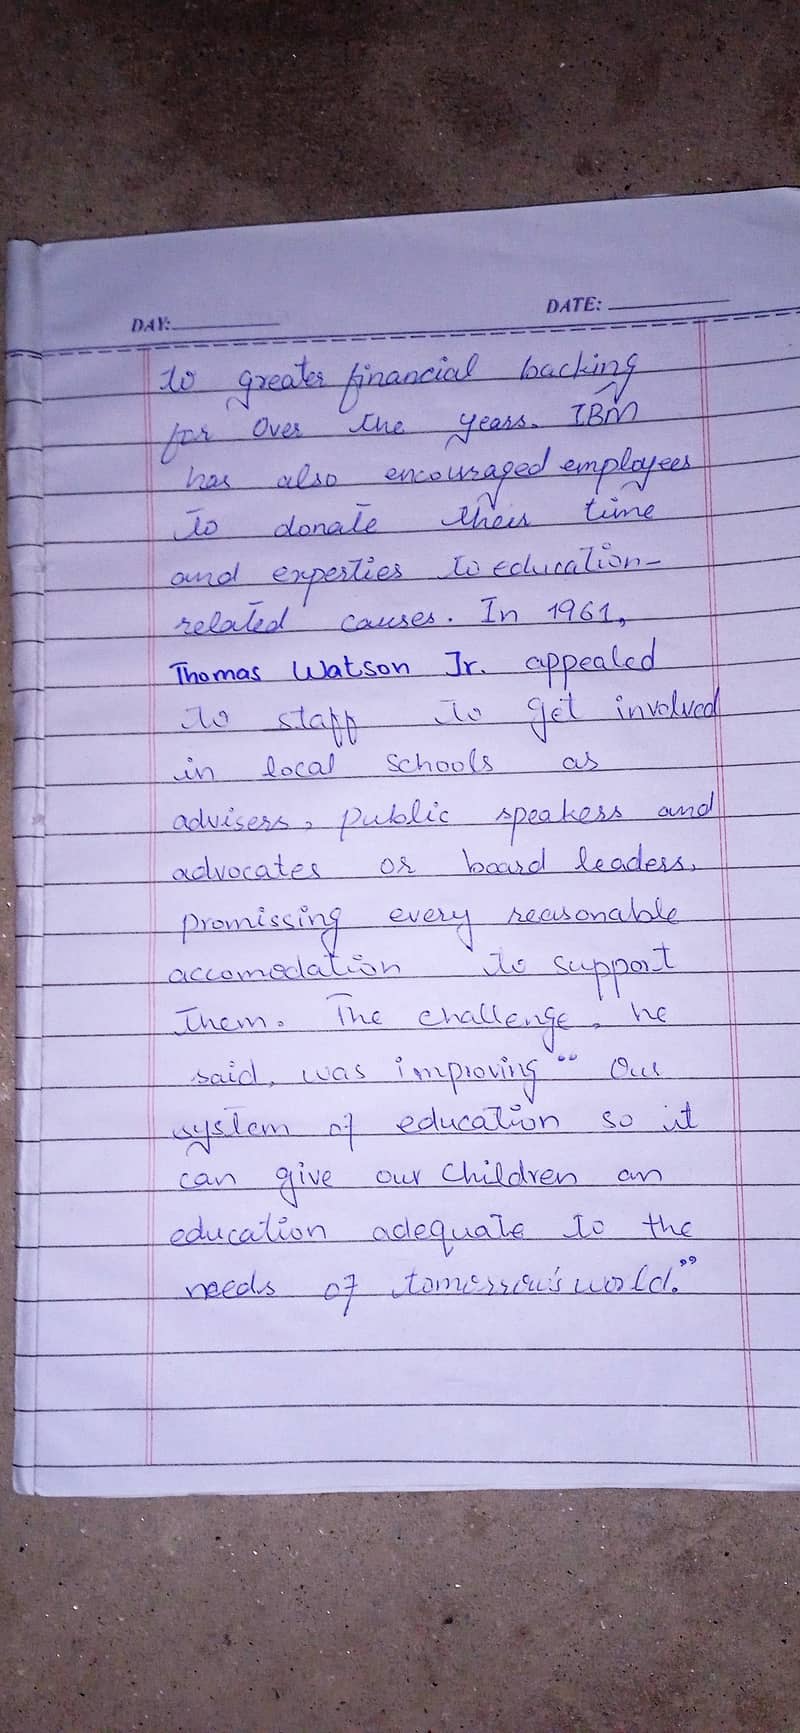 DAY:
DATE:
to greater financial backing
for over the years. IBM
has also encouraged employees
to donate their time
and experties to education-
related causes. In 1961,
Thomas Watson Jr. appealed
to staff to get involved
in local schools as
advisers, public speakers and
advocates or board leaders,
promissing every reasonable
accomodation to support
them. The challenge, he
said, was improving “ Our
system of education so it
can give our children an
education adequate to the
needs of tomorrow's world.”